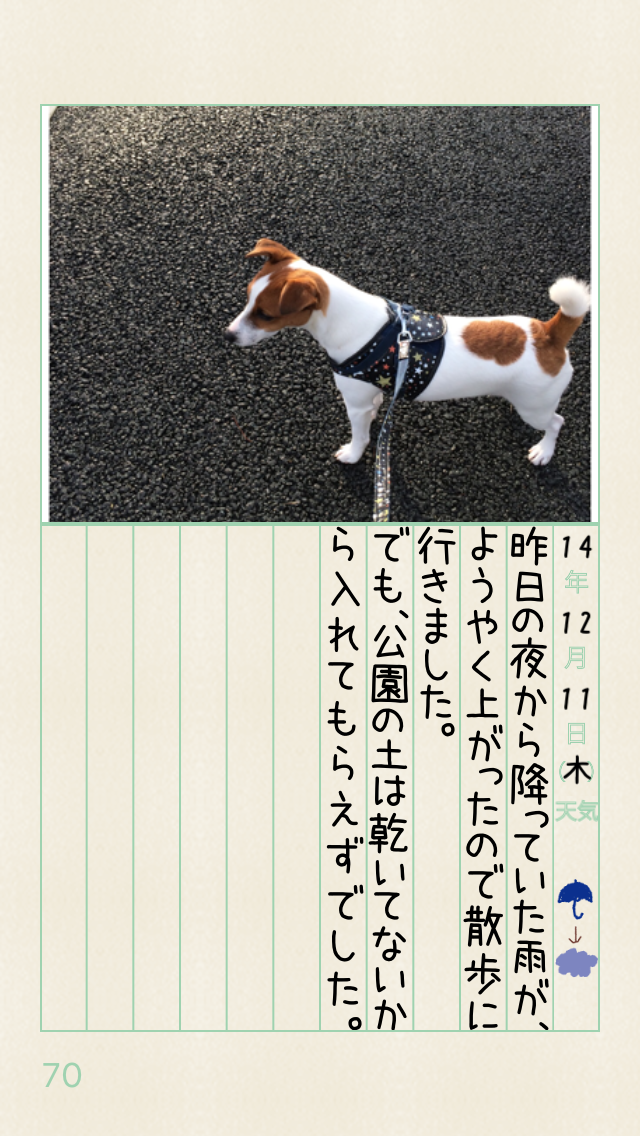 14年12月11日(木)天気
昨日の夜から降っていた雨が、
ようやく上がったので散歩に
行きました。
でも、公園の土は乾いてないか
ら入れてもらえずでした。
70